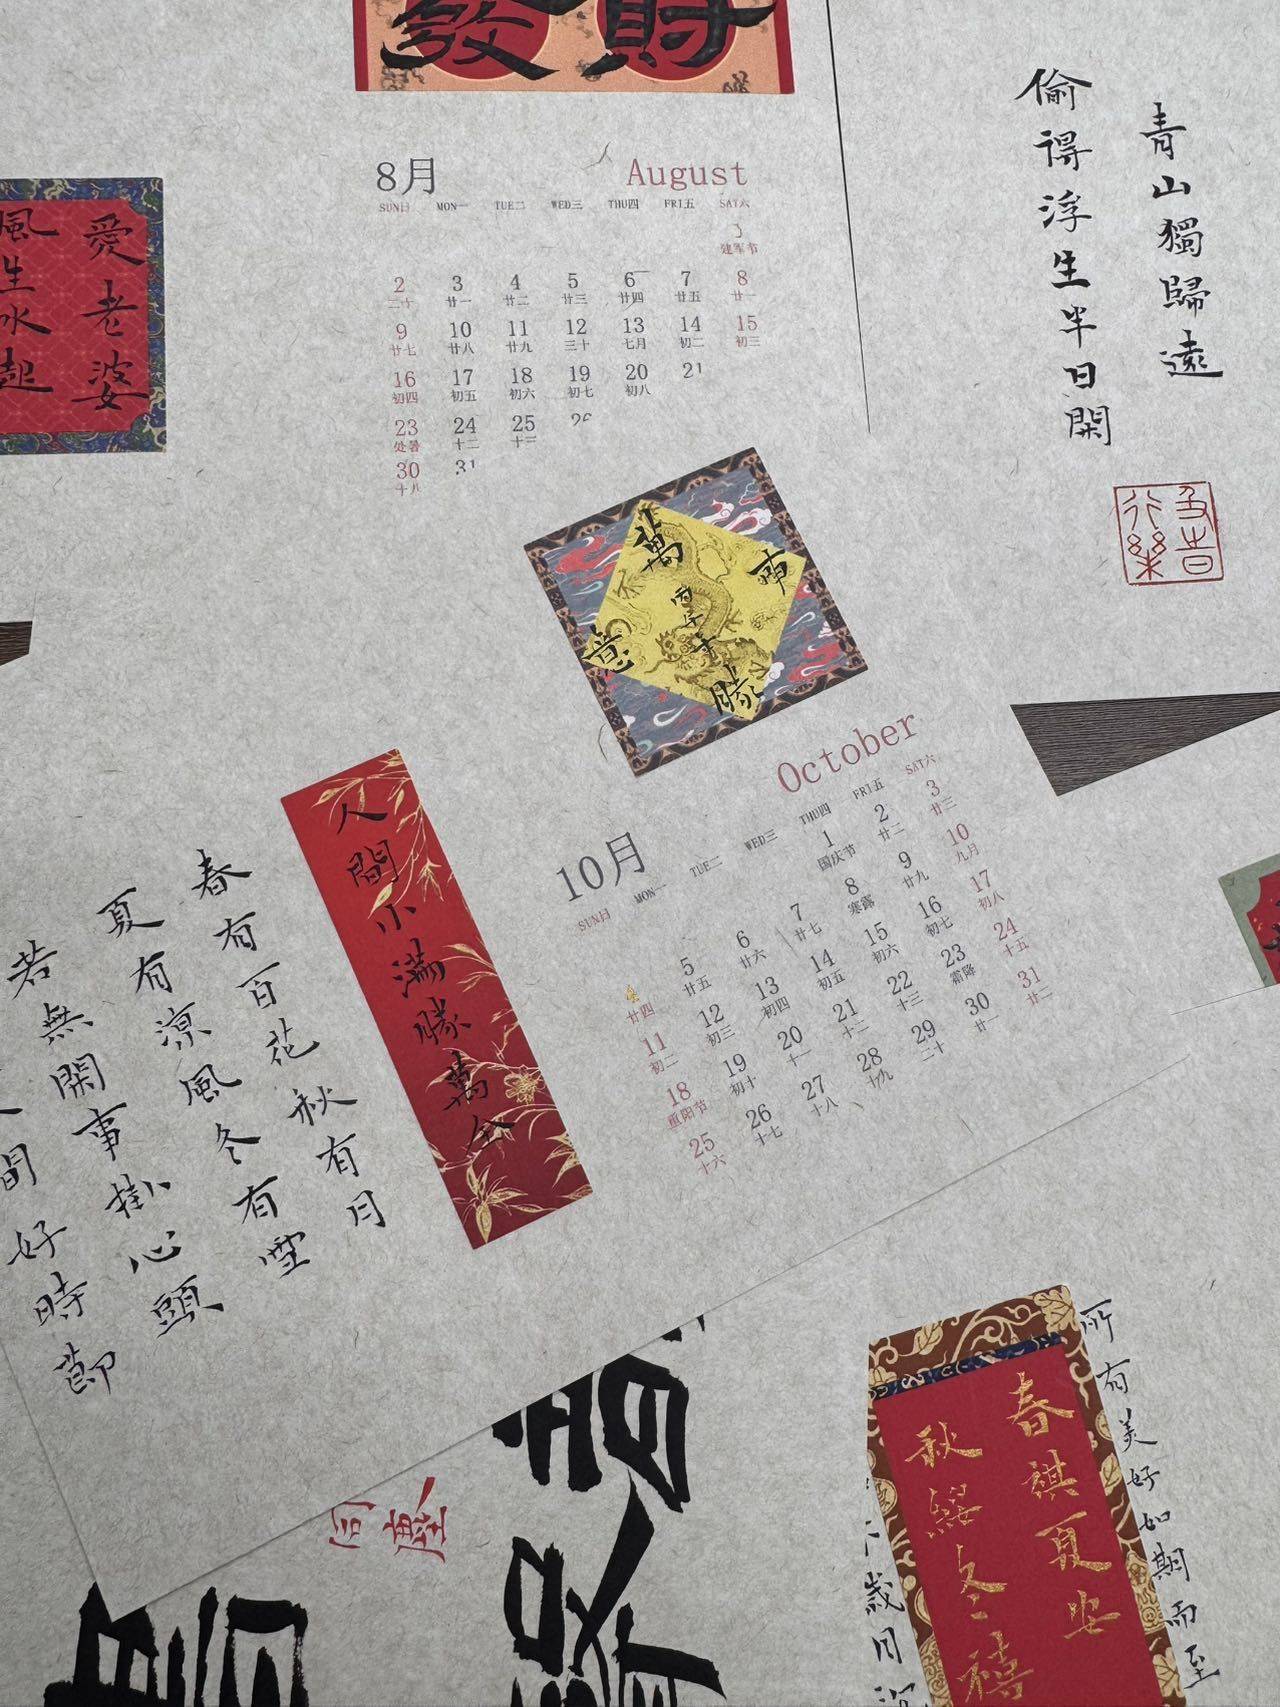 發財
8月 August
SUN日 MON一 TUE二 WED三 THU四 FRI五 SAT六
建军节
2 3 4 5 6 7 8
二十 廿一 廿二 廿三 廿四 廿五 廿一
9 10 11 12 13 14 15
廿七 廿八 廿九 三十 七月 初二 初三
16 17 18 19 20 21
初四 初五 初六 初七 初八
23 24 25
处暑 十二
30 31
十八
愛老婆
風生水起
青山獨歸遠
偷得浮生半日閑
萬
丙午年
勝意
10月 October
SUN日 MON一 TUE二 WED三 THU四 FRI五 SAT六
1 2 3
国庆节 廿二 廿三
5 6 7 8 9 10
廿四 廿五 廿六 廿七 寒露 廿九 九月
11 12 13 14 15 16 17
初二 初三 初四 初五 初六 初七 初八
18 19 20 21 22 23 24
重阳节 初十 十一 十二 十三 霜降 十五
25 26 27 28 29 30 31
十六 十七 十八 十九 二十 廿一 廿二
人間小滿勝萬全
春有百花秋有月
夏有涼風冬有雪
若無閑事掛心頭
間好時節
所有美好如期而至
春祺夏安
秋綏冬禧
歲月